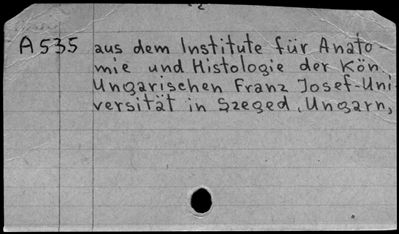 - 2 -
A 535 aus dem Institute für Anato-
mie und Histologie der Kön.
Ungarischen Franz Josef-Uni-
versität in Szeged, Ungarn,